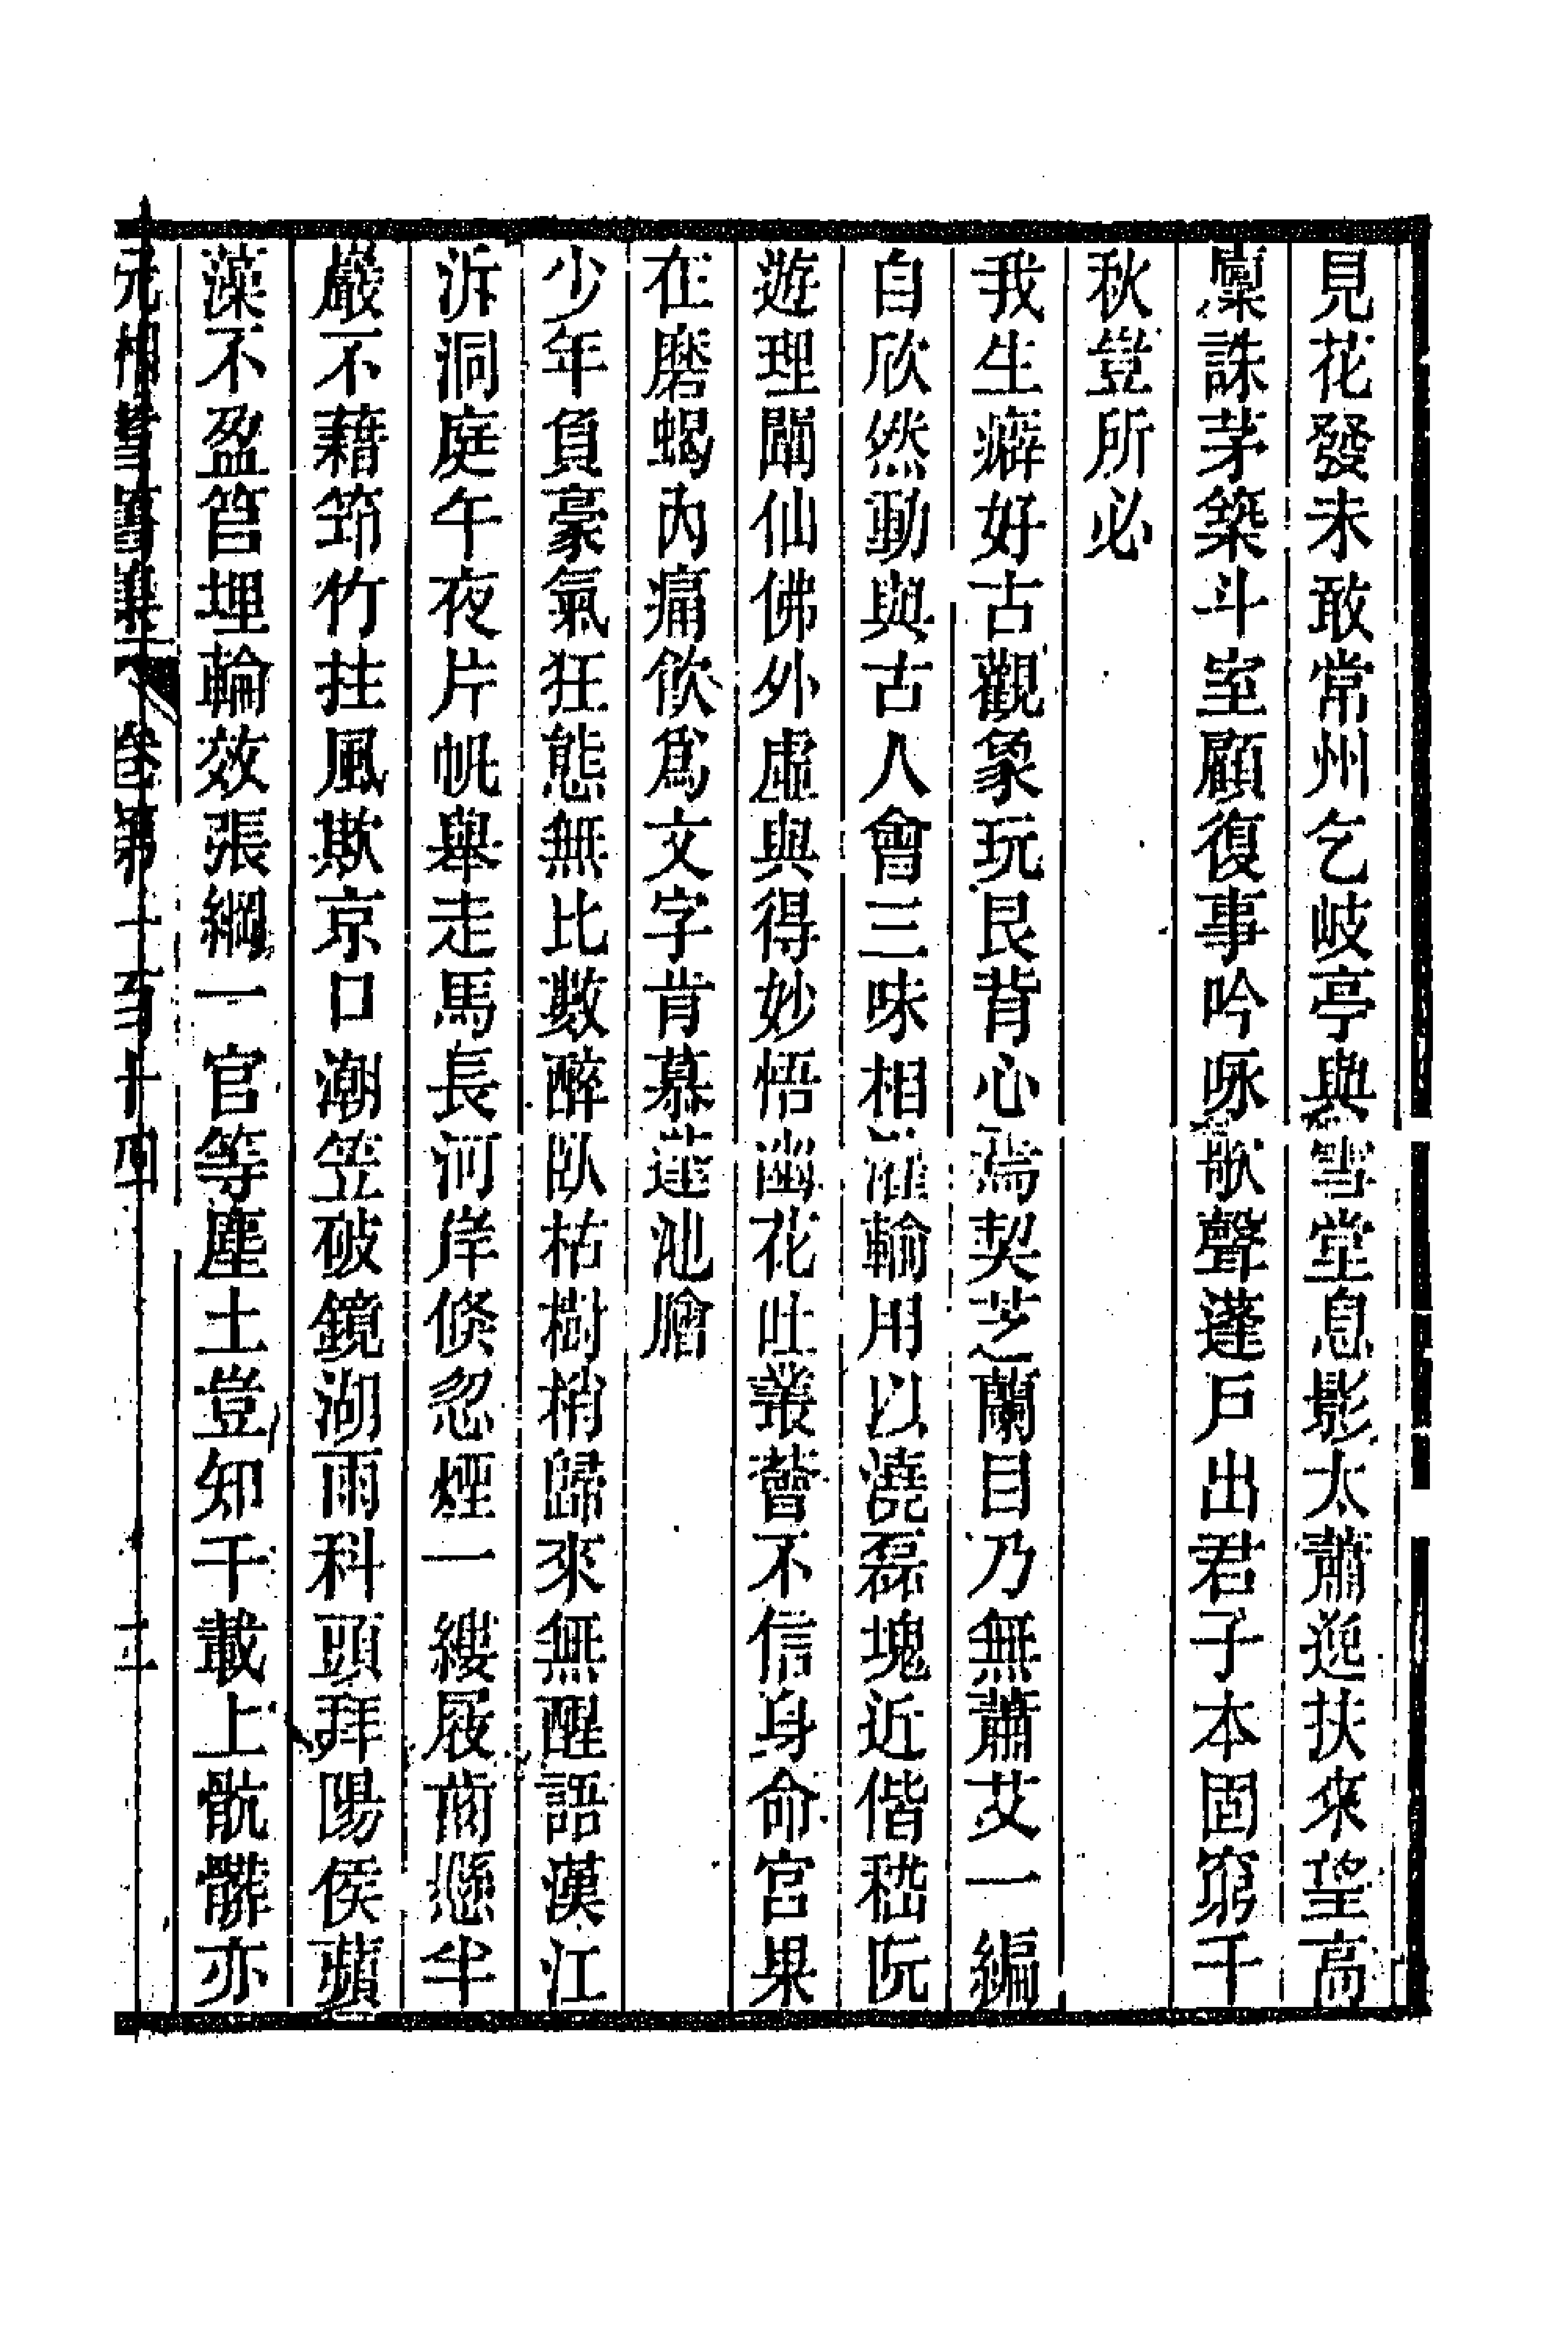 見花發未敢常州乞岐亭與雪堂息影太蕭逸扶來望高
廩誅茅築斗室顧復事吟咏歌聲蓬戶出君子本固窮千
秋豈所必
我生癖好古觀象玩艮背心焉契芝蘭目乃無蕭艾一編
自欣然動與古人會三味相灌輸用以澆磊塊近偕嵇阮
遊理闡仙佛外虛與得妙悟幽花吐叢薈不信身命宮果
在磨蝎內痛飲爲文字肯慕蓮池膾
少年負豪氣狂態無比數醉臥枯樹梢歸來無醒語漢江
泝洞庭午夜片帆舉走馬長河岸倏忽煙一縷屐齒懸半
巖不藉筇竹拄風欺京口潮笠破鏡湖雨科頭拜陽侯蘋
藻不盈筥埋輪效張綱一官等塵土豈知千載上骯髒亦
卷第一百十四